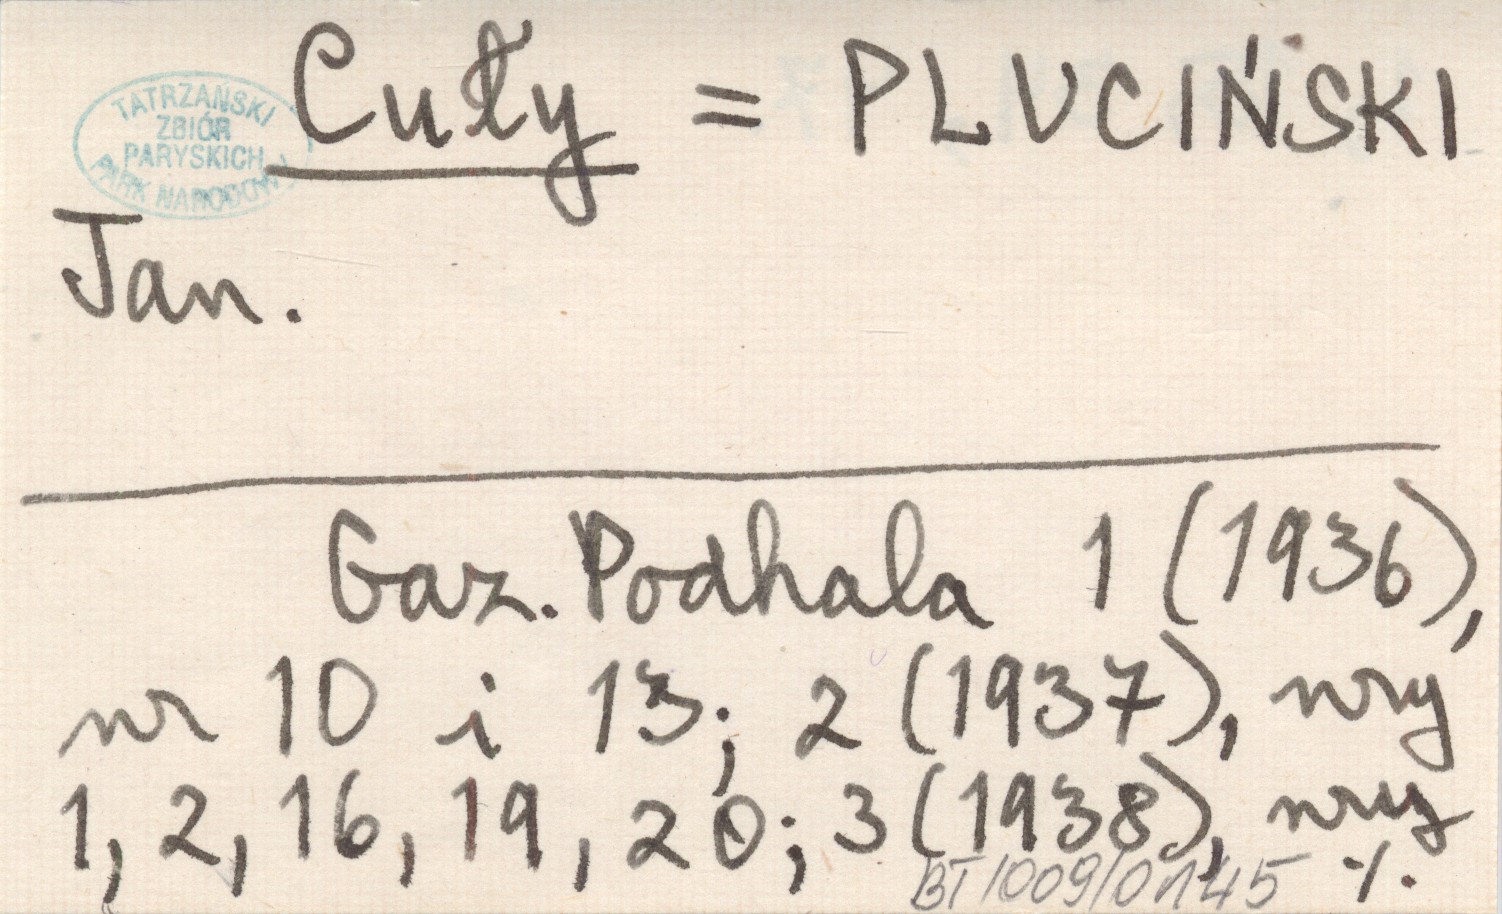 Cuły = PLUCIŃSKI
TATRZAŃSKI
ZBIÓR
PARYSKICH
PARK NARODOWY
Jan.
Gaz. Podhala 1 (1936),
nr 10 i 13; 2 (1937), nry
1, 2, 16, 19, 20; 3 (1938), nry
BT/009/01145 ·/.